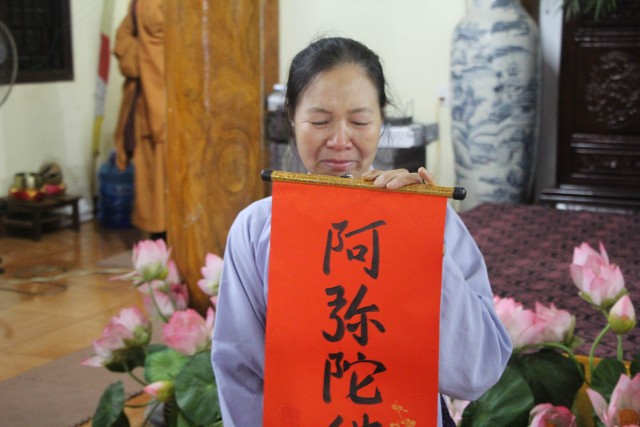 阿弥陀